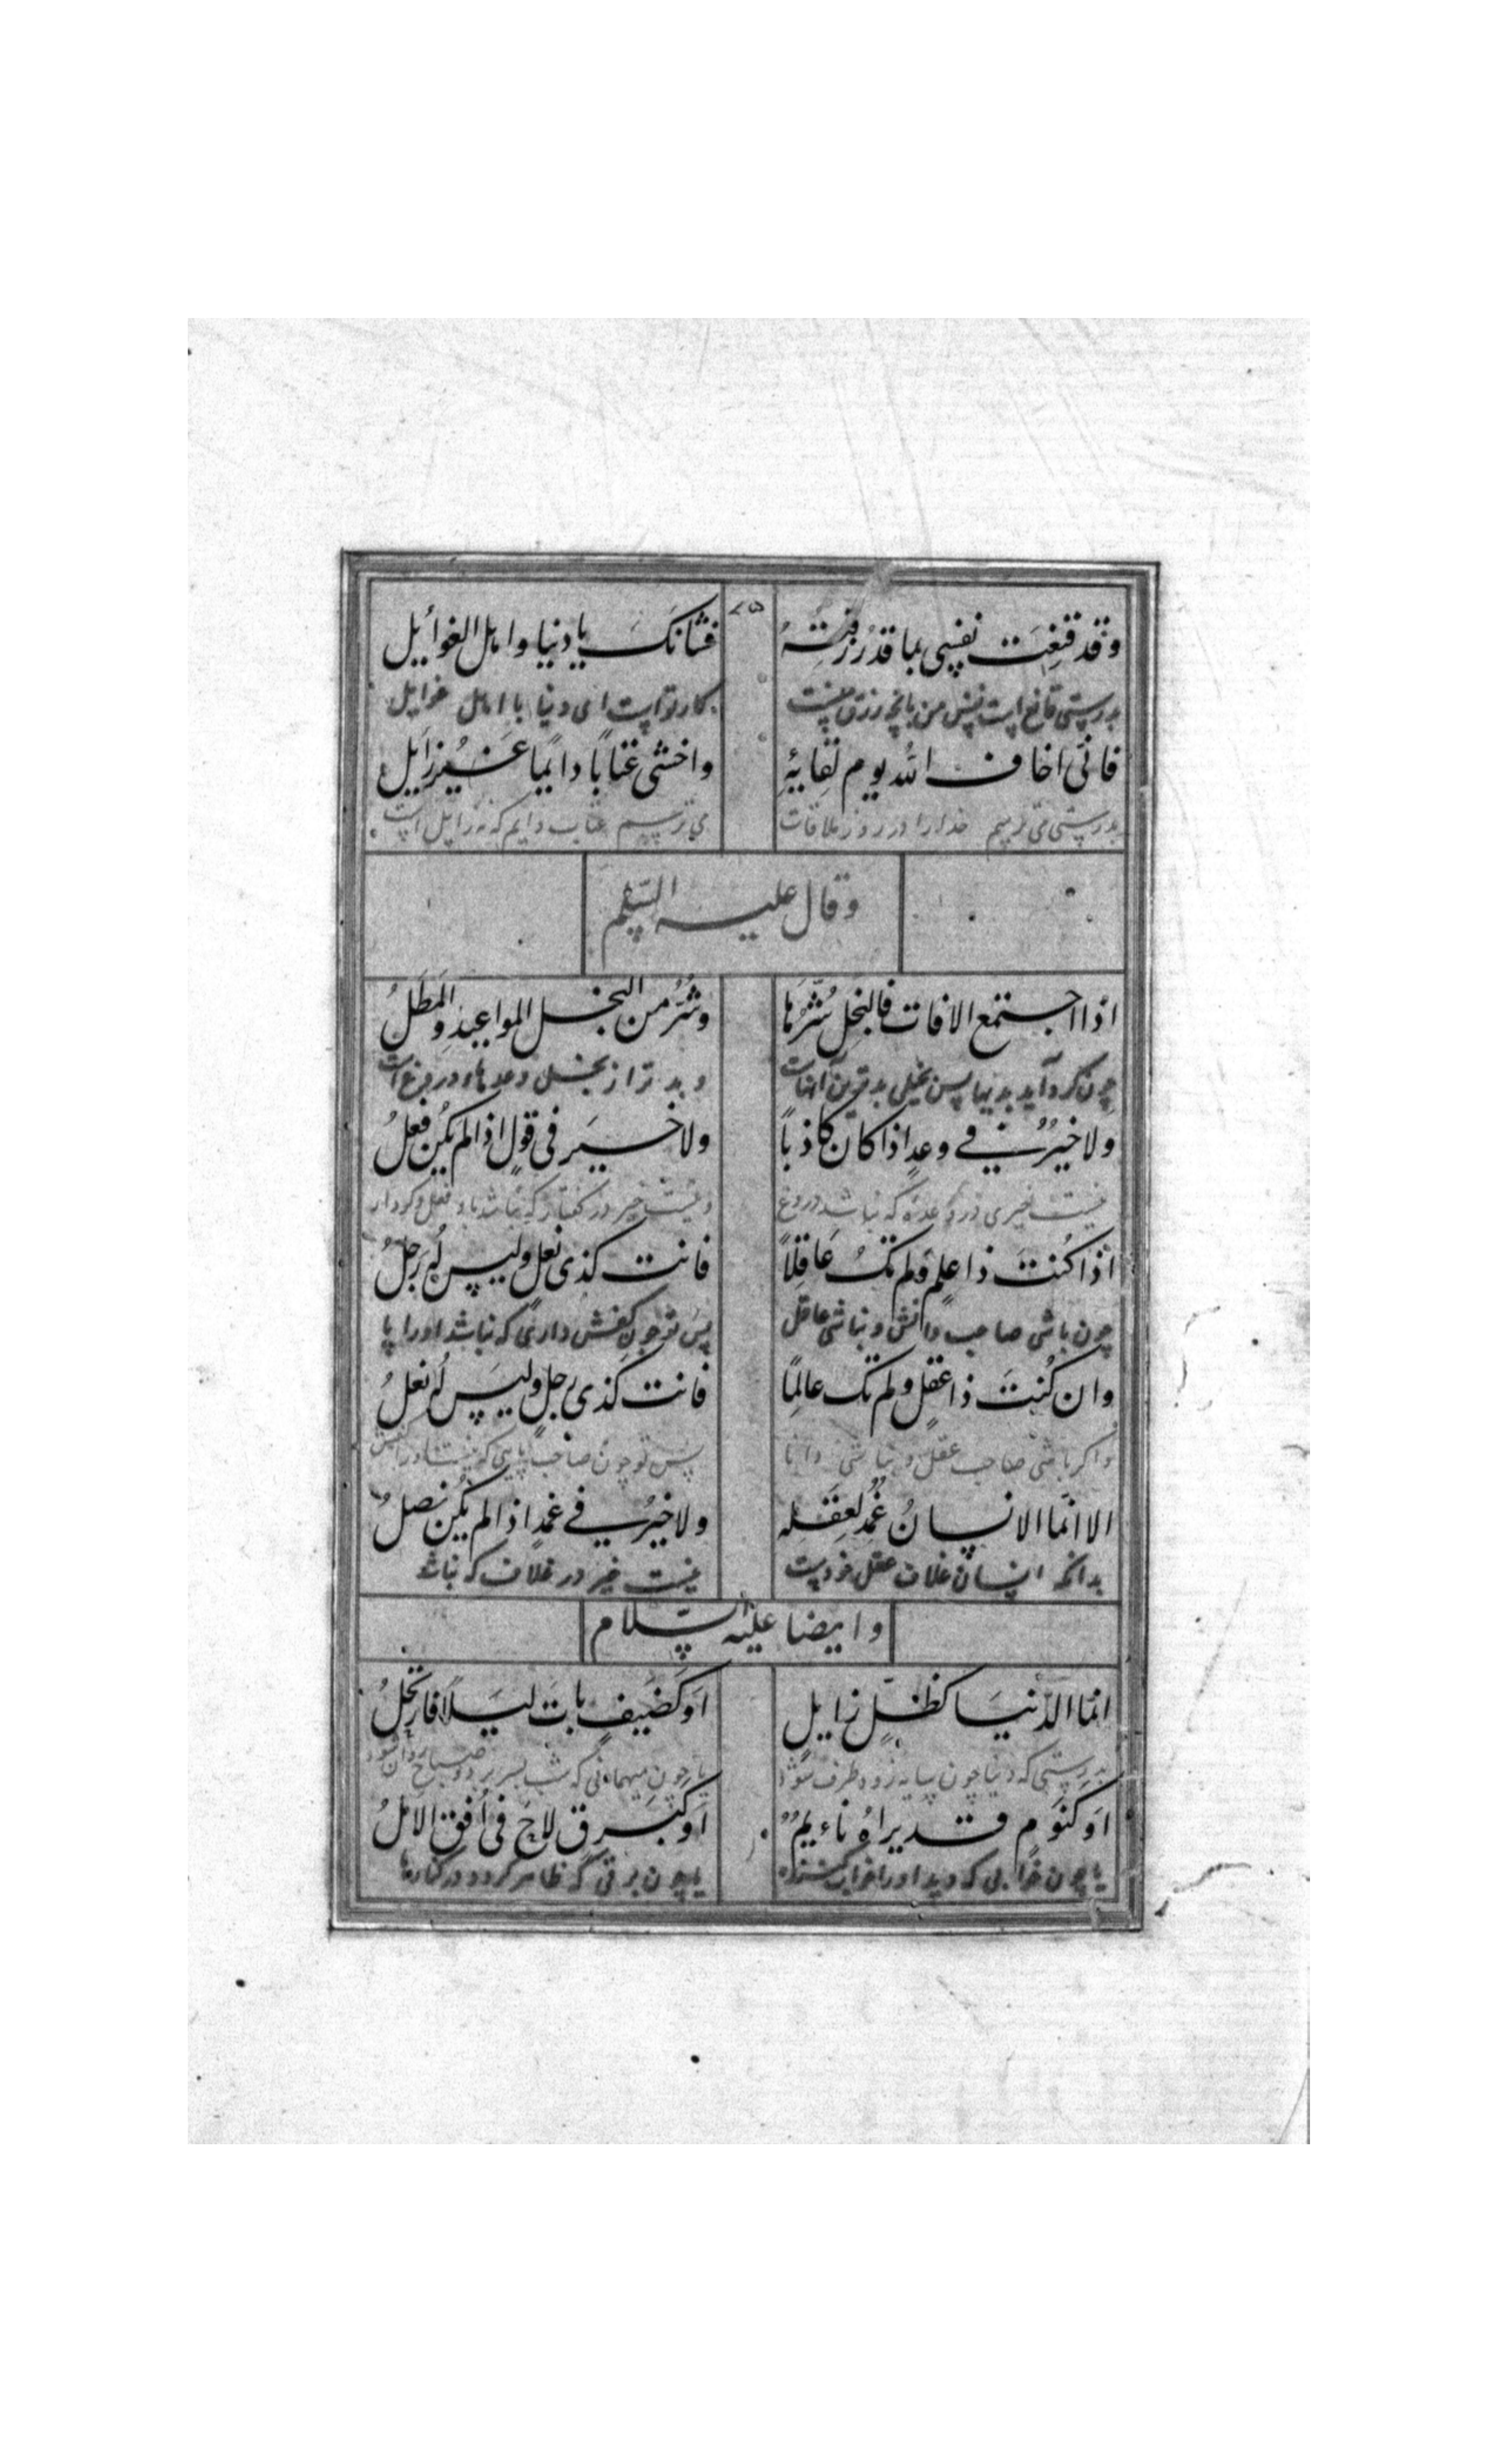 وقد قنعت نفسی بما قد رزقته فشانک یا دنیا و اهل الغوائل
بدرستی قانع است نفس من بانچه رزق منست کار تو است ای دنیا با اهل غوایل
فانی اخاف الله یوم لقایه واخشی عتابا دایما غیر زایل
بدرستی می ترسم خدا را در روز ملاقات می ترسم عتاب دایم که نه زایل است
وقال علیه السلم
اذا اجتمع الافات فالبخل شرها وشر من البخل المواعید والمطل
چون گرد آید بدیها پس بخیلی بدترین آفات و بدتر از بخل وعدهاء دروغ است
ولا خیر فی وعد اذا کان کاذبا ولا خیر فی قول اذا لم یکن فعل
نیست خیری در وعده که باشد دروغ و نیست خیر در گفتار که نباشد با و فعل و کردار
اذا کنت ذا علم ولم تک عاقلا فانت کذی نعل ولیس له رجل
چون باشی صاحب دانش و نباشی عاقل پس تو چون کفش داری که نباشد او را پا
وان کنت ذا عقل ولم تک عالما فانت کذی رجل ولیس له نعل
و اگر باشی صاحب عقل و نباشی دانا پس تو چون صاحب پایی که نیست او را کفش
الا انما الانسان غمد لعقله ولا خیر فی غمد اذا لم یکن نصل
بدانکه انسان غلاف عقل خودست نیست خیر در غلاف که نباشد
وایضا علیه السلام
انما الدنیا کظل زایل او کضیف بات لیلا فارتحل
بدرستی که دنیا چون سایه زود طرف شود یا چون میهمانی که شب بسر برد و صباح روان شود
او کنوم قد یراه نائم او کبرق لاح فی افق الامل
یا چون خوابی که دید او را خواب کننده یا چون برقی که ظاهر گردد در کنارها